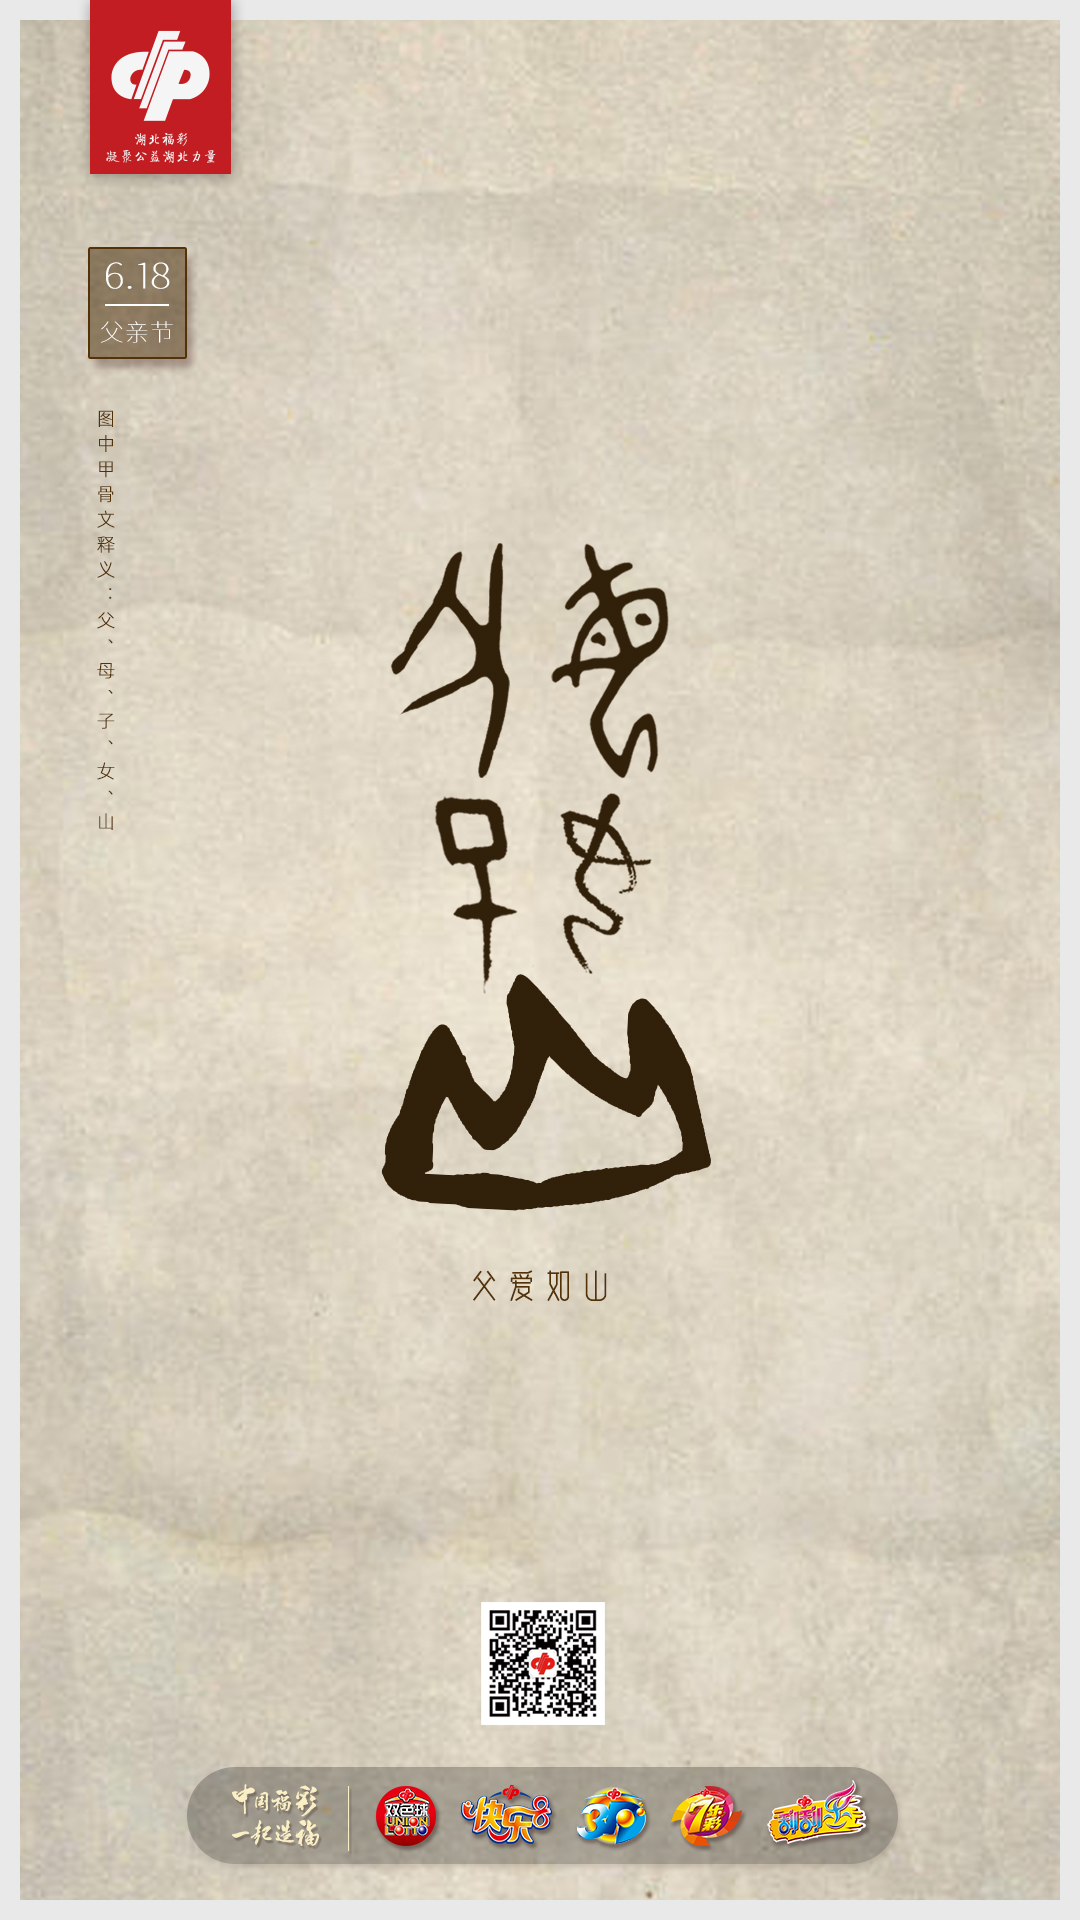 湖北福彩
凝聚公益湖北力量
6.18
父亲节
图中甲骨文释义：父、母、子、女、山
父 母
子 女
山
父爱如山
中国福彩
一起造福
双色球
UNION
LOTTO
快乐8
3D
7乐彩
刮刮乐